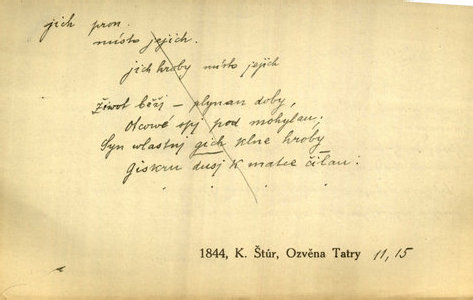 jich pron.
místo jejich.
jich hroby místo jejich
Život běží – plynau doby,
Otcowé spj pod mohylau;
Syn wlastnj gich klne hroby
Giskru dusj k matce čilau:
1844, K. Štúr, Ozvěna Tatry 11, 15